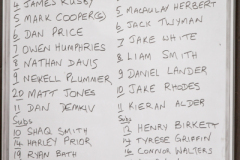 4 JAMES RUSBY
5 MARK COOPER(C)
6 DAN PRICE
7 OWEN HUMPHRIES
8 NATHAN DAVIS
9 NEKELL PLUMMER
20 MATT JONES
11 DAN
Subs
10 SHAQ SMITH
14 HARLEY PRIOR
19 RYAN BATH
5 MACAULAY HERBERT
6 JACK TWYMAN
7 JAKE WHITE
8 LIAM SMITH
9 DANIEL LANDER
10 JAKE RHODES
11 KIERAN ALDER
Subs
12 HENRY BIRKETT
14 TYRESE GRIFFIN
16 CONNOR WALTERS